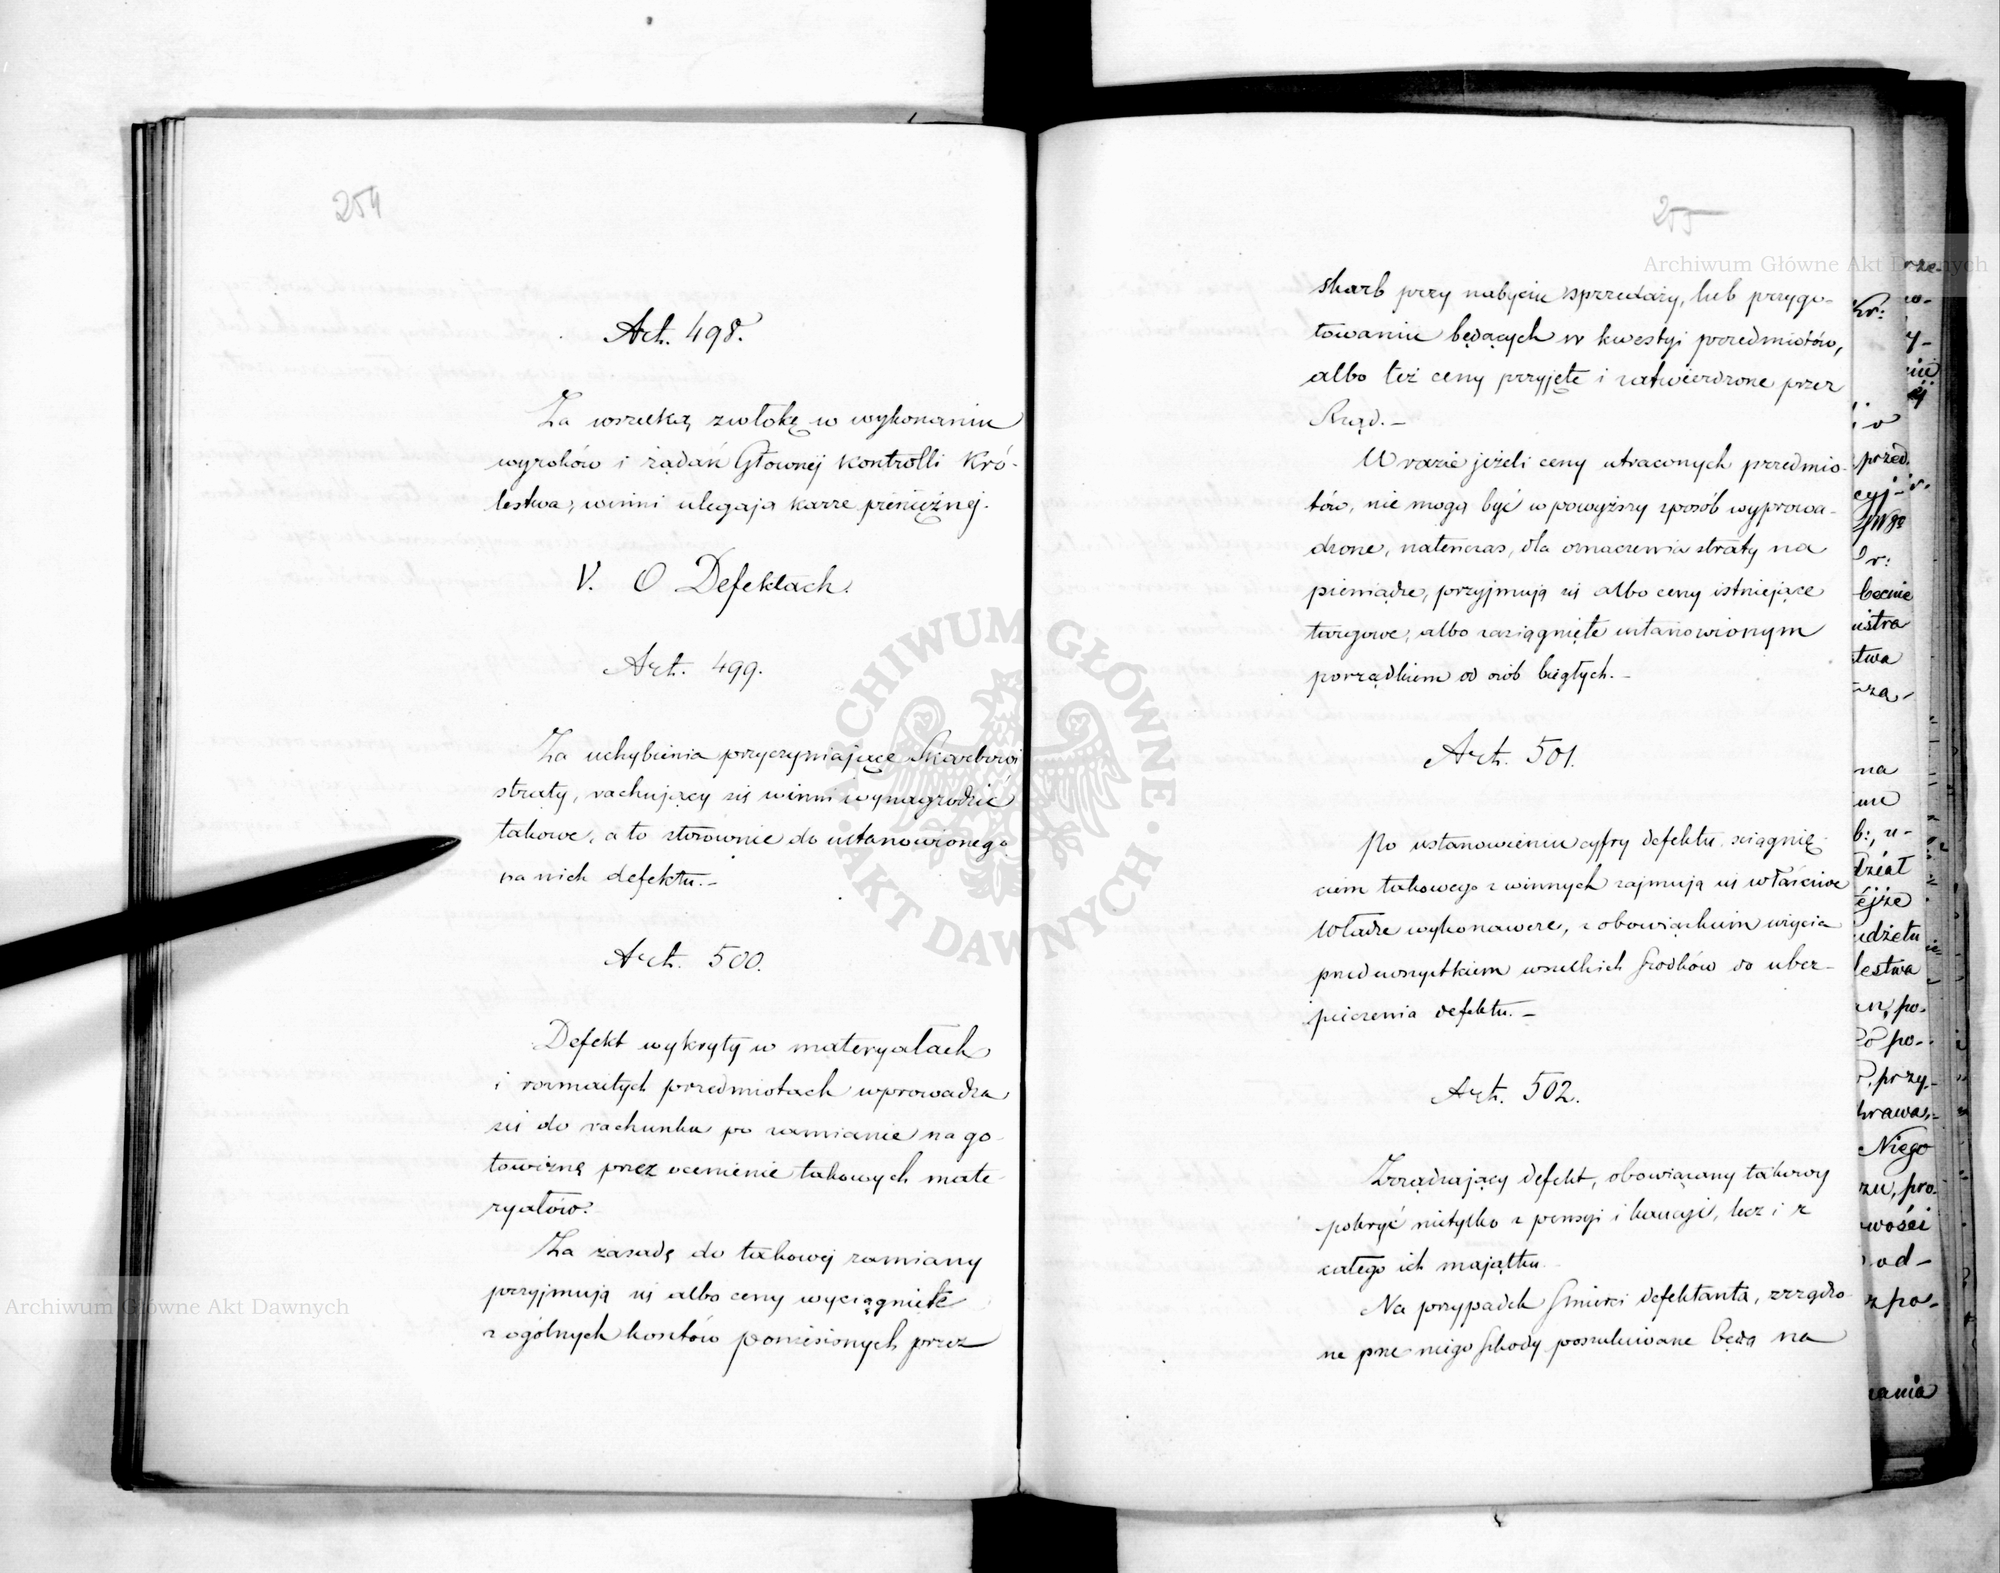 254
Art. 498.
Za wszelką zwłokę w wykonaniu
wyroków i żądań Głownej Kontrolli Kró-
lestwa, winni ulegają karze pieniężnej.
V. O Defektach.
Art. 499.
Za uchybienia przyczyniające Skarbowi
straty, rachujący się winni wynagrodzić
takowe, a to stosownie do ustanowionego
na nich defektu.-
Art. 500.
Defekt wykryty w materyałach
i rozmaitych przedmiotach wprowadza
się do rachunku po zamianie na go-
towiznę przez ocenienie takowych mate-
ryałów.
Za zasadę do takowej zamiany
przyjmują się albo ceny wyciągnięte
z ogólnych kosztów poniesionych przez
255
skarb przy nabyciu sprzedaży, lub przygo-
towaniu będących w kwestyi przedmiotów,
albo też ceny przyjęte i zatwierdzone przez
Rząd.-
W razie jeżeli ceny utraconych przedmio-
tów, nie mogą być w powyższy sposób wyprowa-
dzone, natenczas, dla oznaczenia straty na
pieniądze, przyjmują się albo ceny istniejące
targowe, albo zasiągnięte ustanowionym
porządkiem od osób biegłych.-
Art. 501.
Po ustanowieniu cyfry defektu, ściągnię-
ciem takowego z winnych zajmują się właściwe
Władze wykonawcze, z obowiązkiem użycia
przedewszystkiem wszelkich środków do ubez-
pieczenia defektu.-
Art. 502.
Zrządzający defekt, obowiązany takowy
pokryć nietylko z pensyi i kaucyi, lecz i z
całego ich majątku.
Na przypadek śmierci defektanta, zrządzo-
ne przez niego szkody poszukiwane będą na
Archiwum Główne Akt Dawnych
Archiwum Główne Akt Dawnych
ARCHIWUM GŁÓWNE · AKT DAWNYCH ·